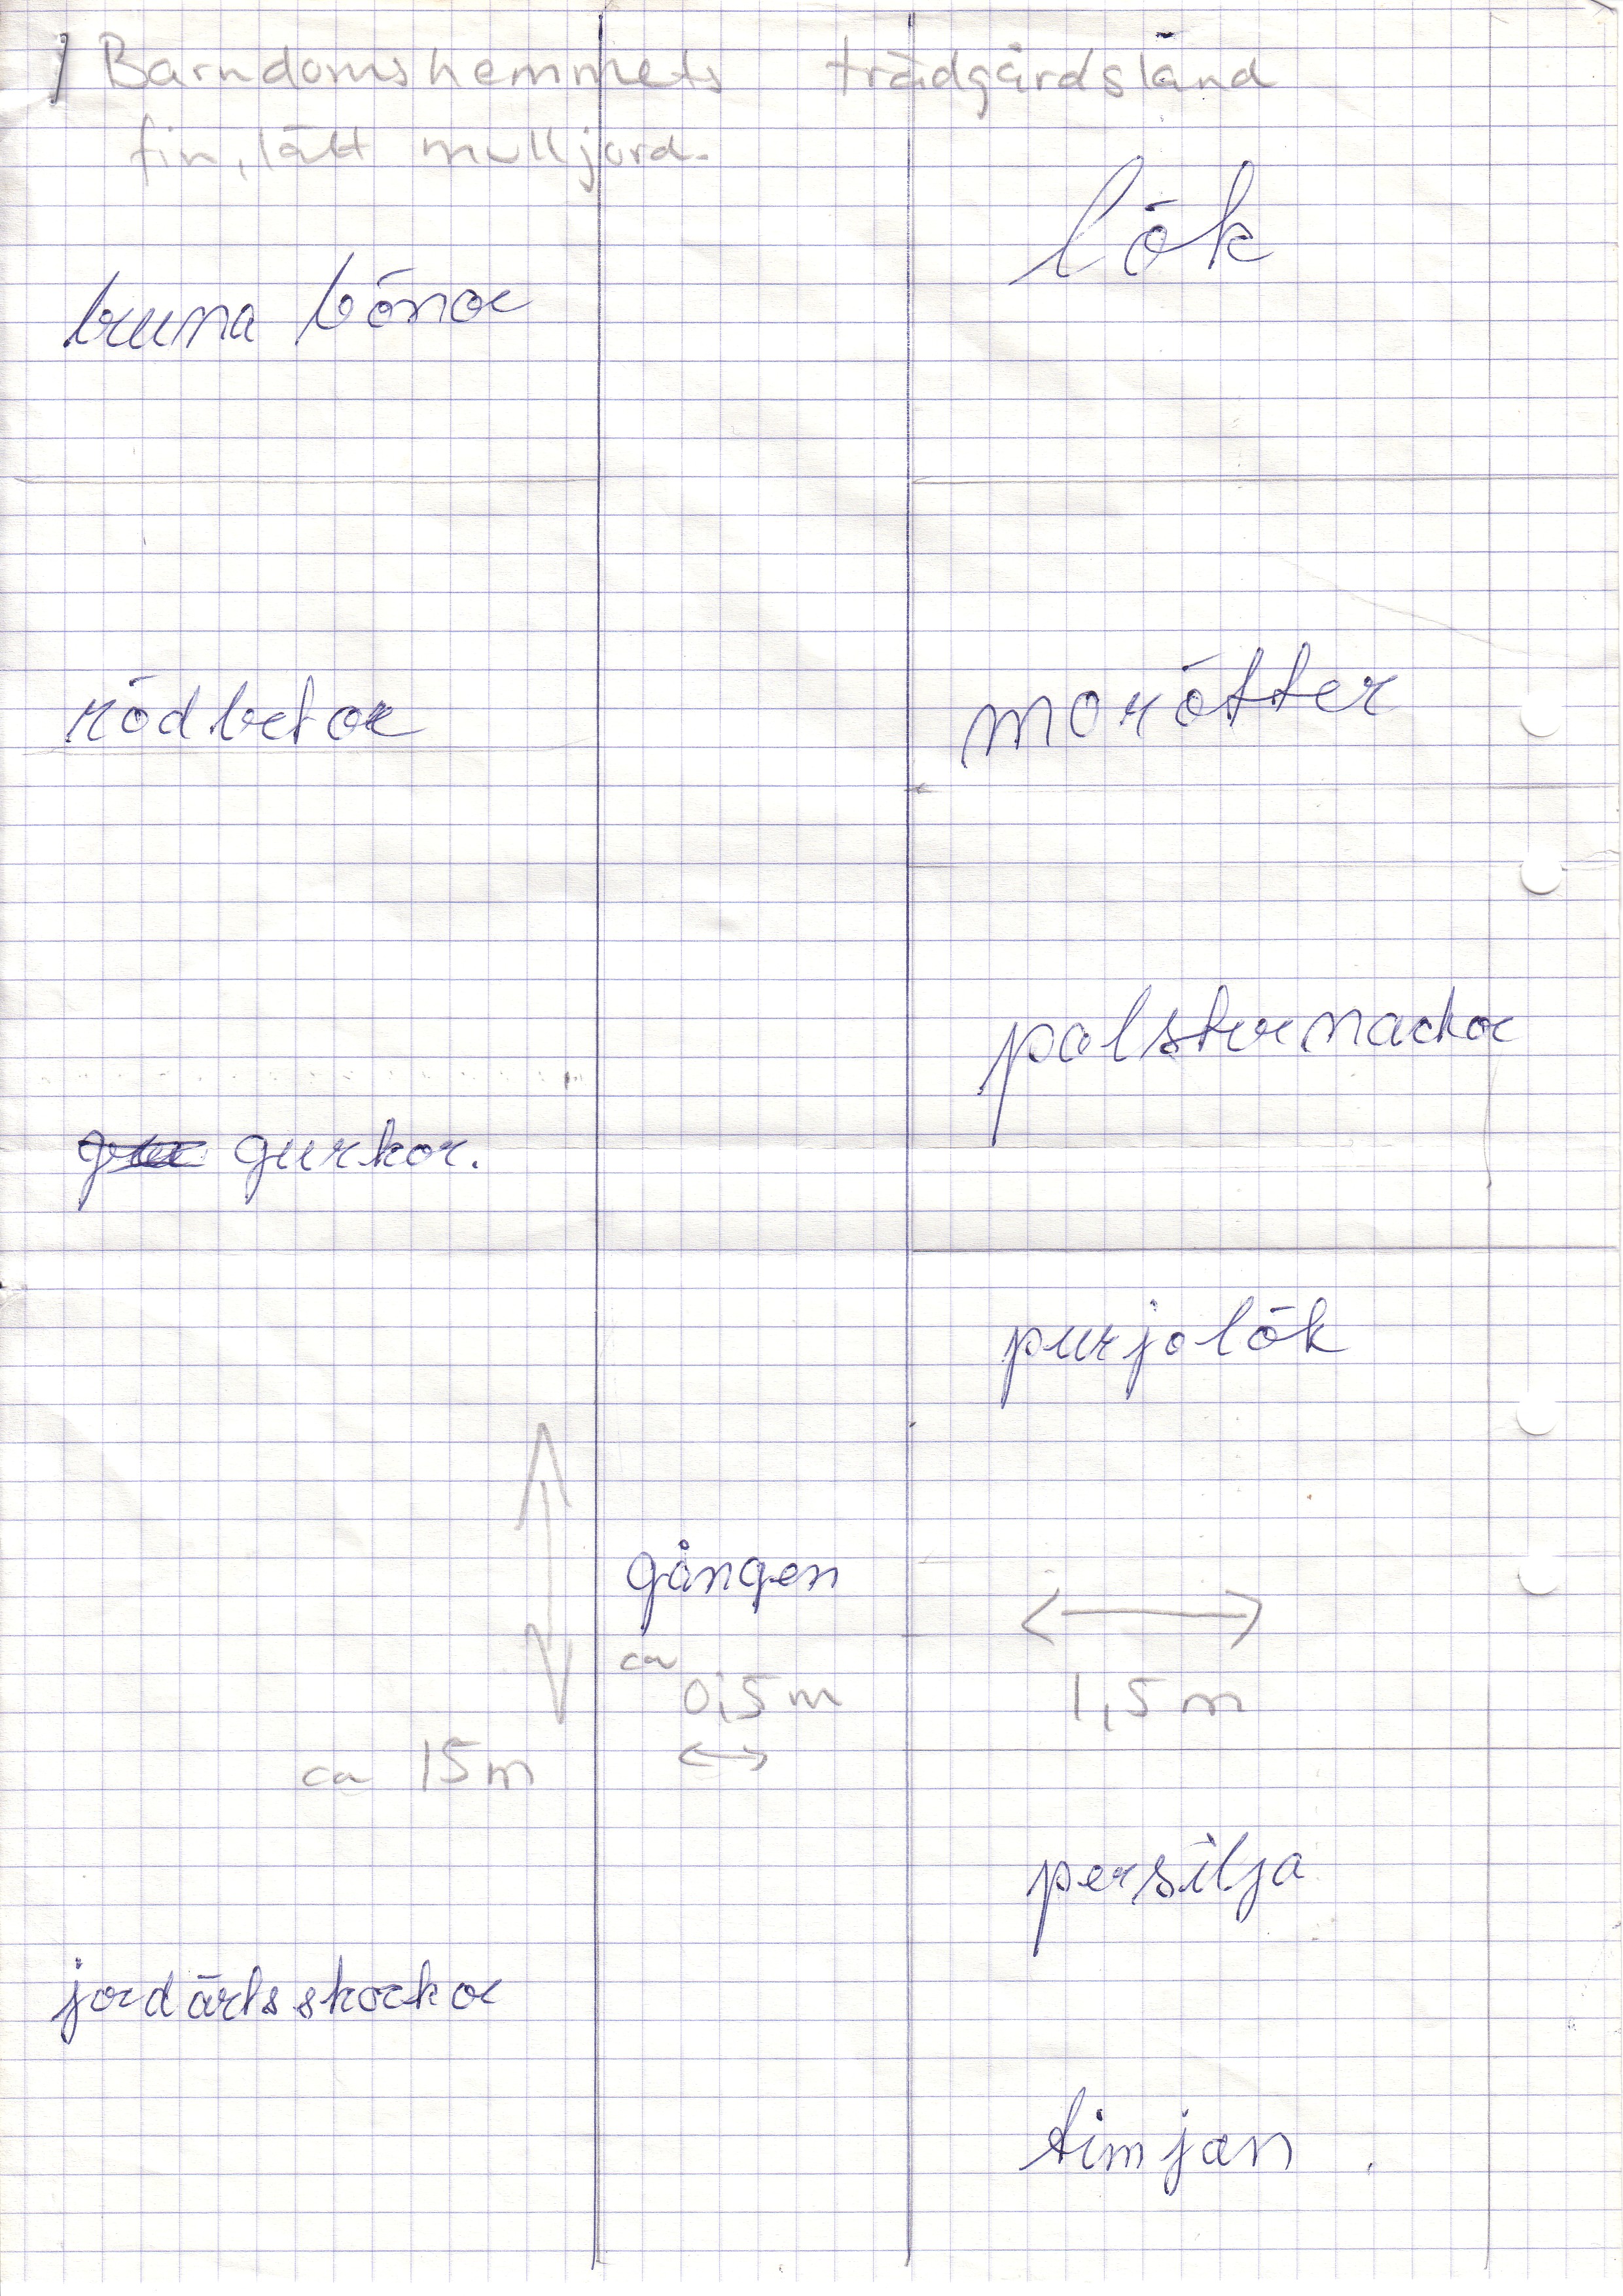 1 Barndomshemmets trädgårdsland
fin, lätt mulljord.
lök
bruna bönor
rödbetor
morötter
palsternackor
gurkor.
purjolök
gången
ca
0,5 m
1,5 m
ca 15 m
persilja
jordärtsskockor
timjan